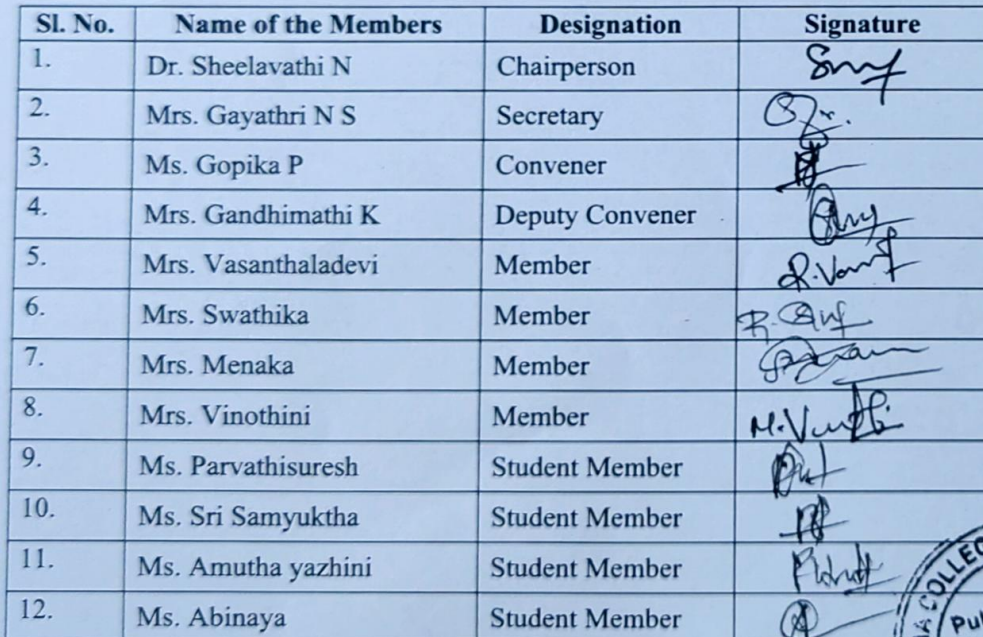 Sl. No. Name of the Members Designation Signature
1. Dr. Sheelavathi N Chairperson
2. Mrs. Gayathri N S Secretary
3. Ms. Gopika P Convener
4. Mrs. Gandhimathi K Deputy Convener
5. Mrs. Vasanthaladevi Member
6. Mrs. Swathika Member
7. Mrs. Menaka Member
8. Mrs. Vinothini Member
9. Ms. Parvathisuresh Student Member
10. Ms. Sri Samyuktha Student Member
11. Ms. Amutha yazhini Student Member
12. Ms. Abinaya Student Member